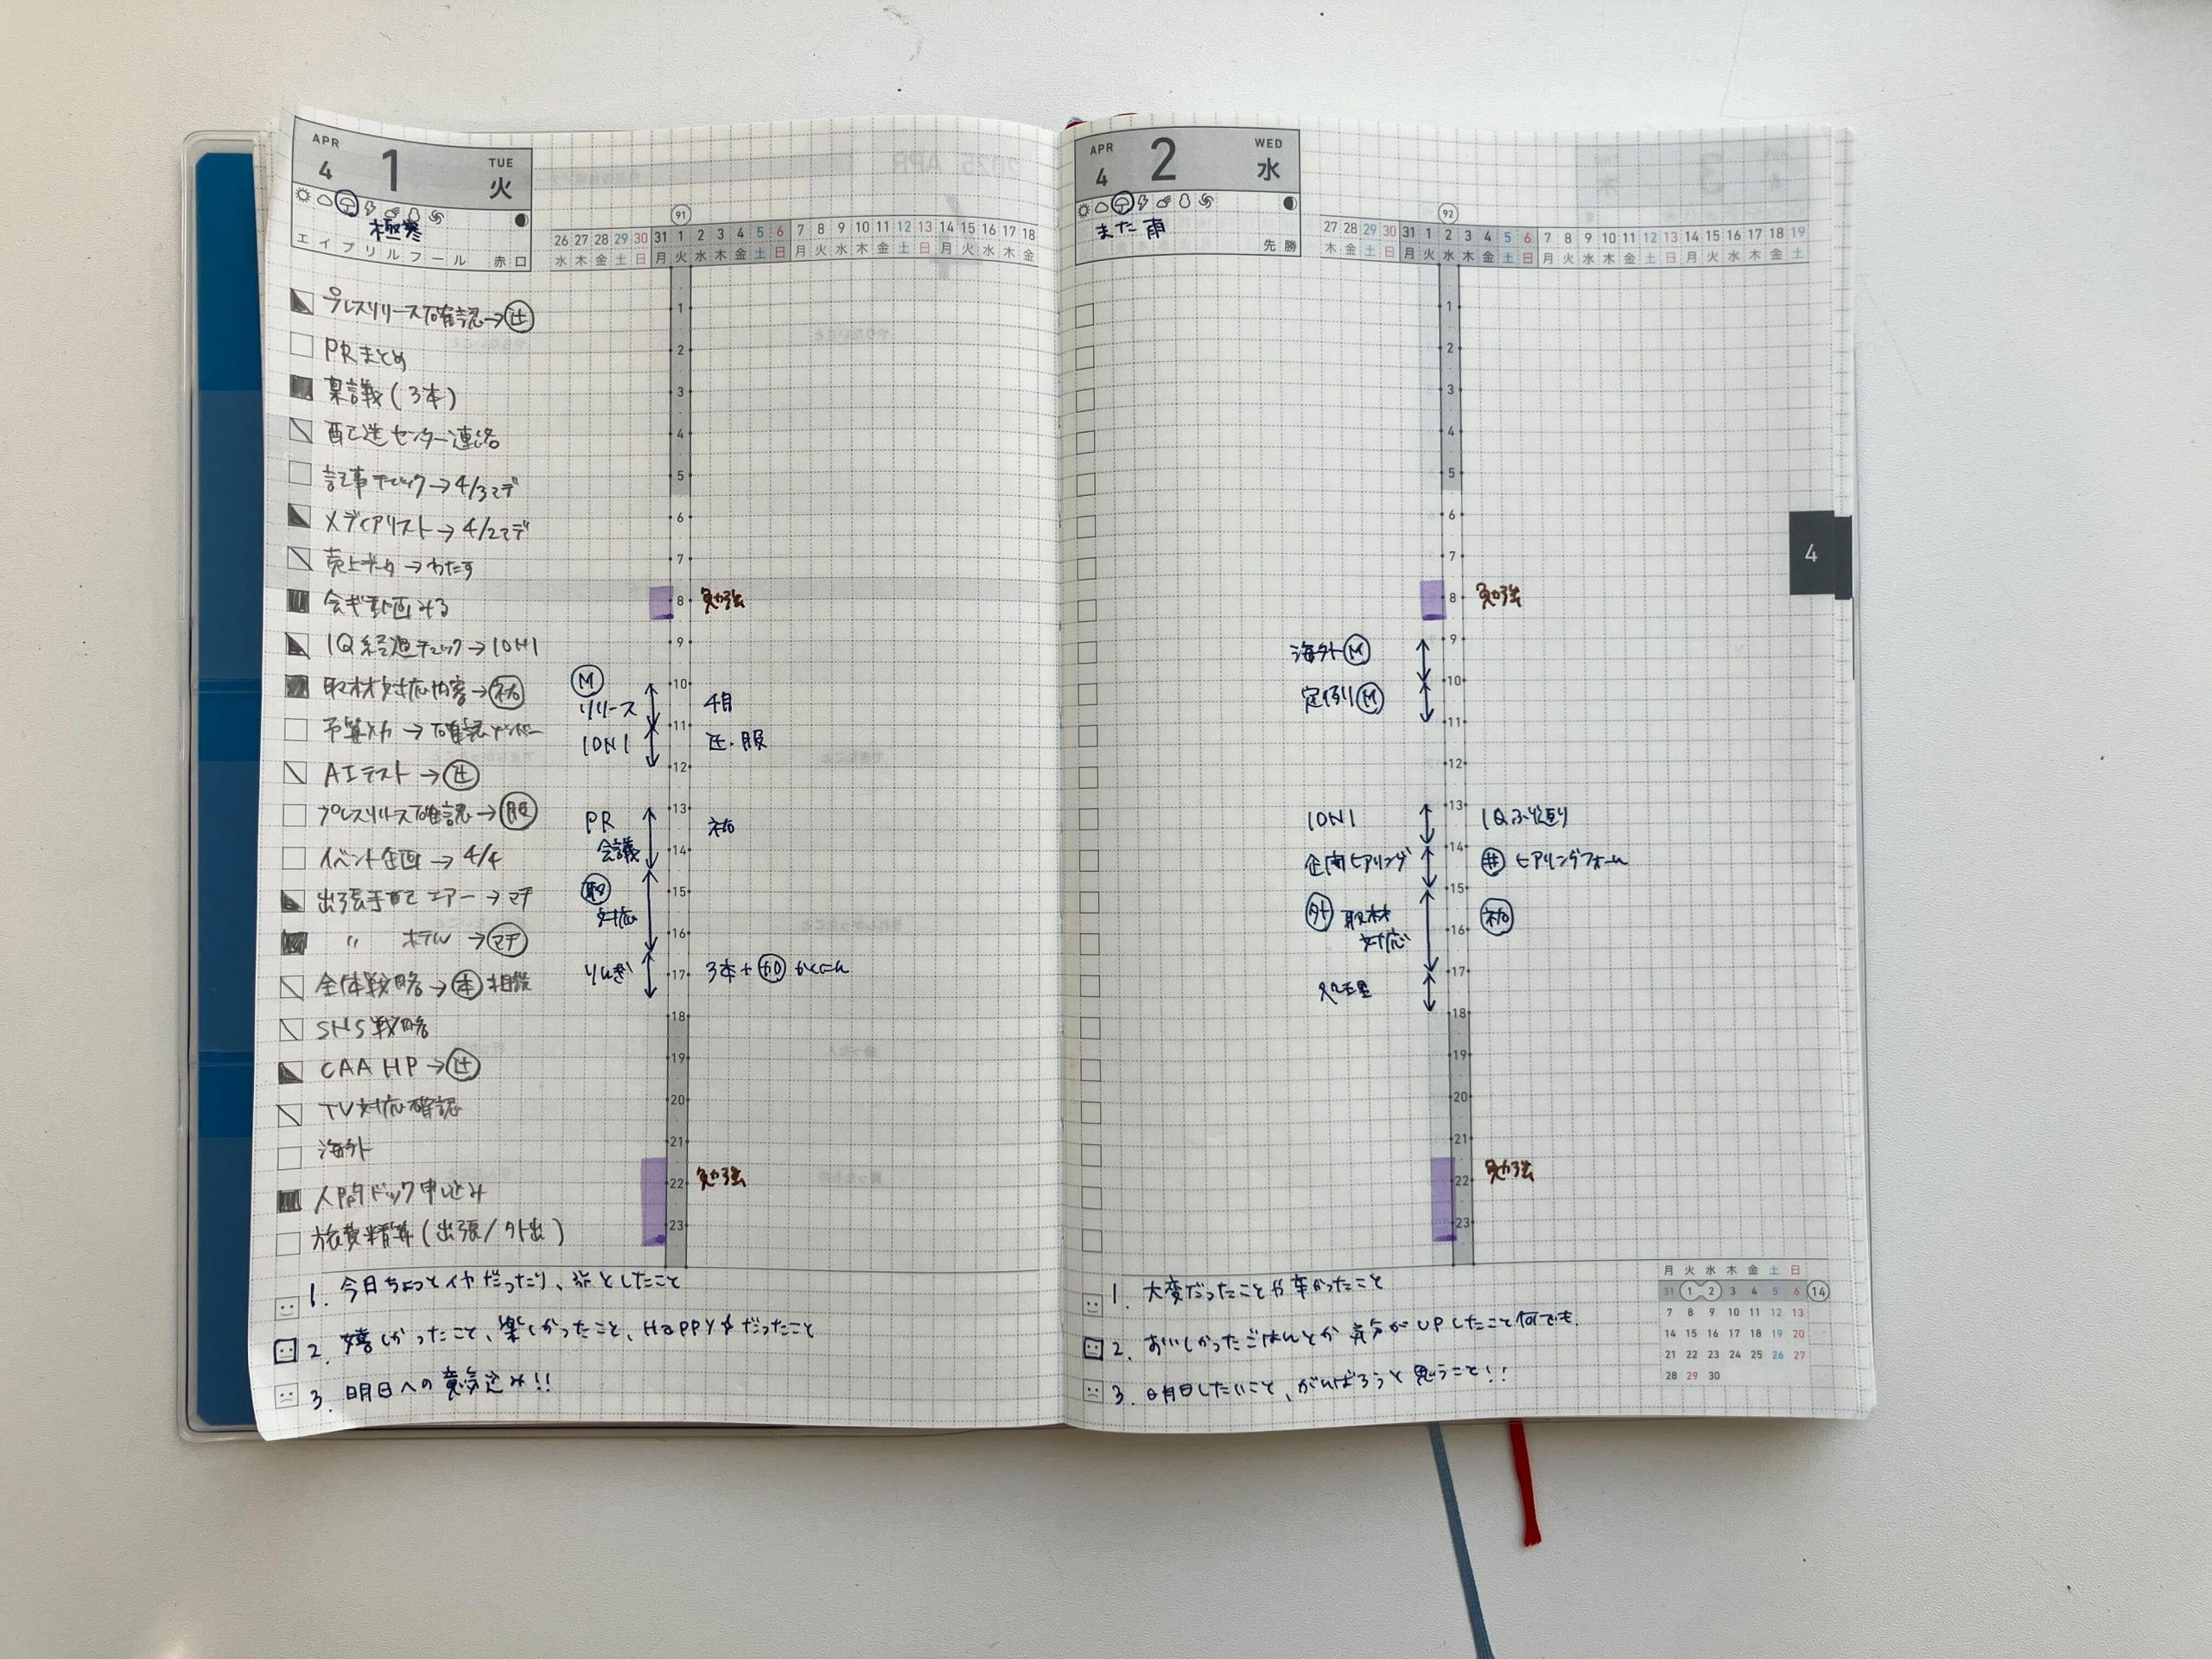 APR
4 1 TUE 火
極寒
エイプリルフール 赤口
91
26 27 28 29 30 31 1 2 3 4 5 6 7 8 9 10 11 12 13 14 15 16 17 18
水 木 金 土 日 月 火 水 木 金 土 日 月 火 水 木 金 土 日 月 火 水 木 金
プレスリリース確認→辻
PRまとめ
稟議(3本)
配送センター連絡
記事チェック→4/3マデ
メディアリスト→4/2マデ
売上データ→わたす
会ギ動画みる
1Q経過チェック→1ON1
取材対応内容→祐
予算入力→確認
AIテスト→辻
プレスリリース確認→服
イベント企画→4/4
出張手配 エアー→マチ
〃 ホテル→マチ
全体戦略→本相談
SNS戦略
CAA HP→辻
TV対応確認
海外
人間ドック申し込み
旅費精算(出張/外出)
1
2
3
4
5
6
7
8 勉強
9
M
10
リリース 4月
11
1ON1 辻・服
12
13
PR 祐
会議 14
取 15
対応
16
りんぎ 17 3本+ かくにん
18
19
20
21
22 勉強
23
1. 今日ちょっとイヤだったり、としたこと
2. 嬉しかったこと、楽しかったこと、Happyだったこと
3. 明日への意気込み!!
APR
4 2 WED 水
また雨
先勝
92
27 28 29 30 31 1 2 3 4 5 6 7 8 9 10 11 12 13 14 15 16 17 18 19
木 金 土 日 月 火 水 木 金 土 日 月 火 水 木 金 土 日 月 火 水 木 金 土
1
2
3
4
5
6
7
8 勉強
9
海外M
10
定例M
11
12
13
1ON1 1Qふり返り
14
企画ヒアリング 井 ヒアリングフォーム
15
外 取材 祐
対応 16
17
処理
18
19
20
21
22 勉強
23
4
1. 大変だったことや辛かったこと
2. おいしかったごはんとか気分がUPしたこと何でも.
3. 明日したいこと、がんばろうと思うこと!!
月 火 水 木 金 土 日
31 1 2 3 4 5 6 14
7 8 9 10 11 12 13
14 15 16 17 18 19 20
21 22 23 24 25 26 27
28 29 30